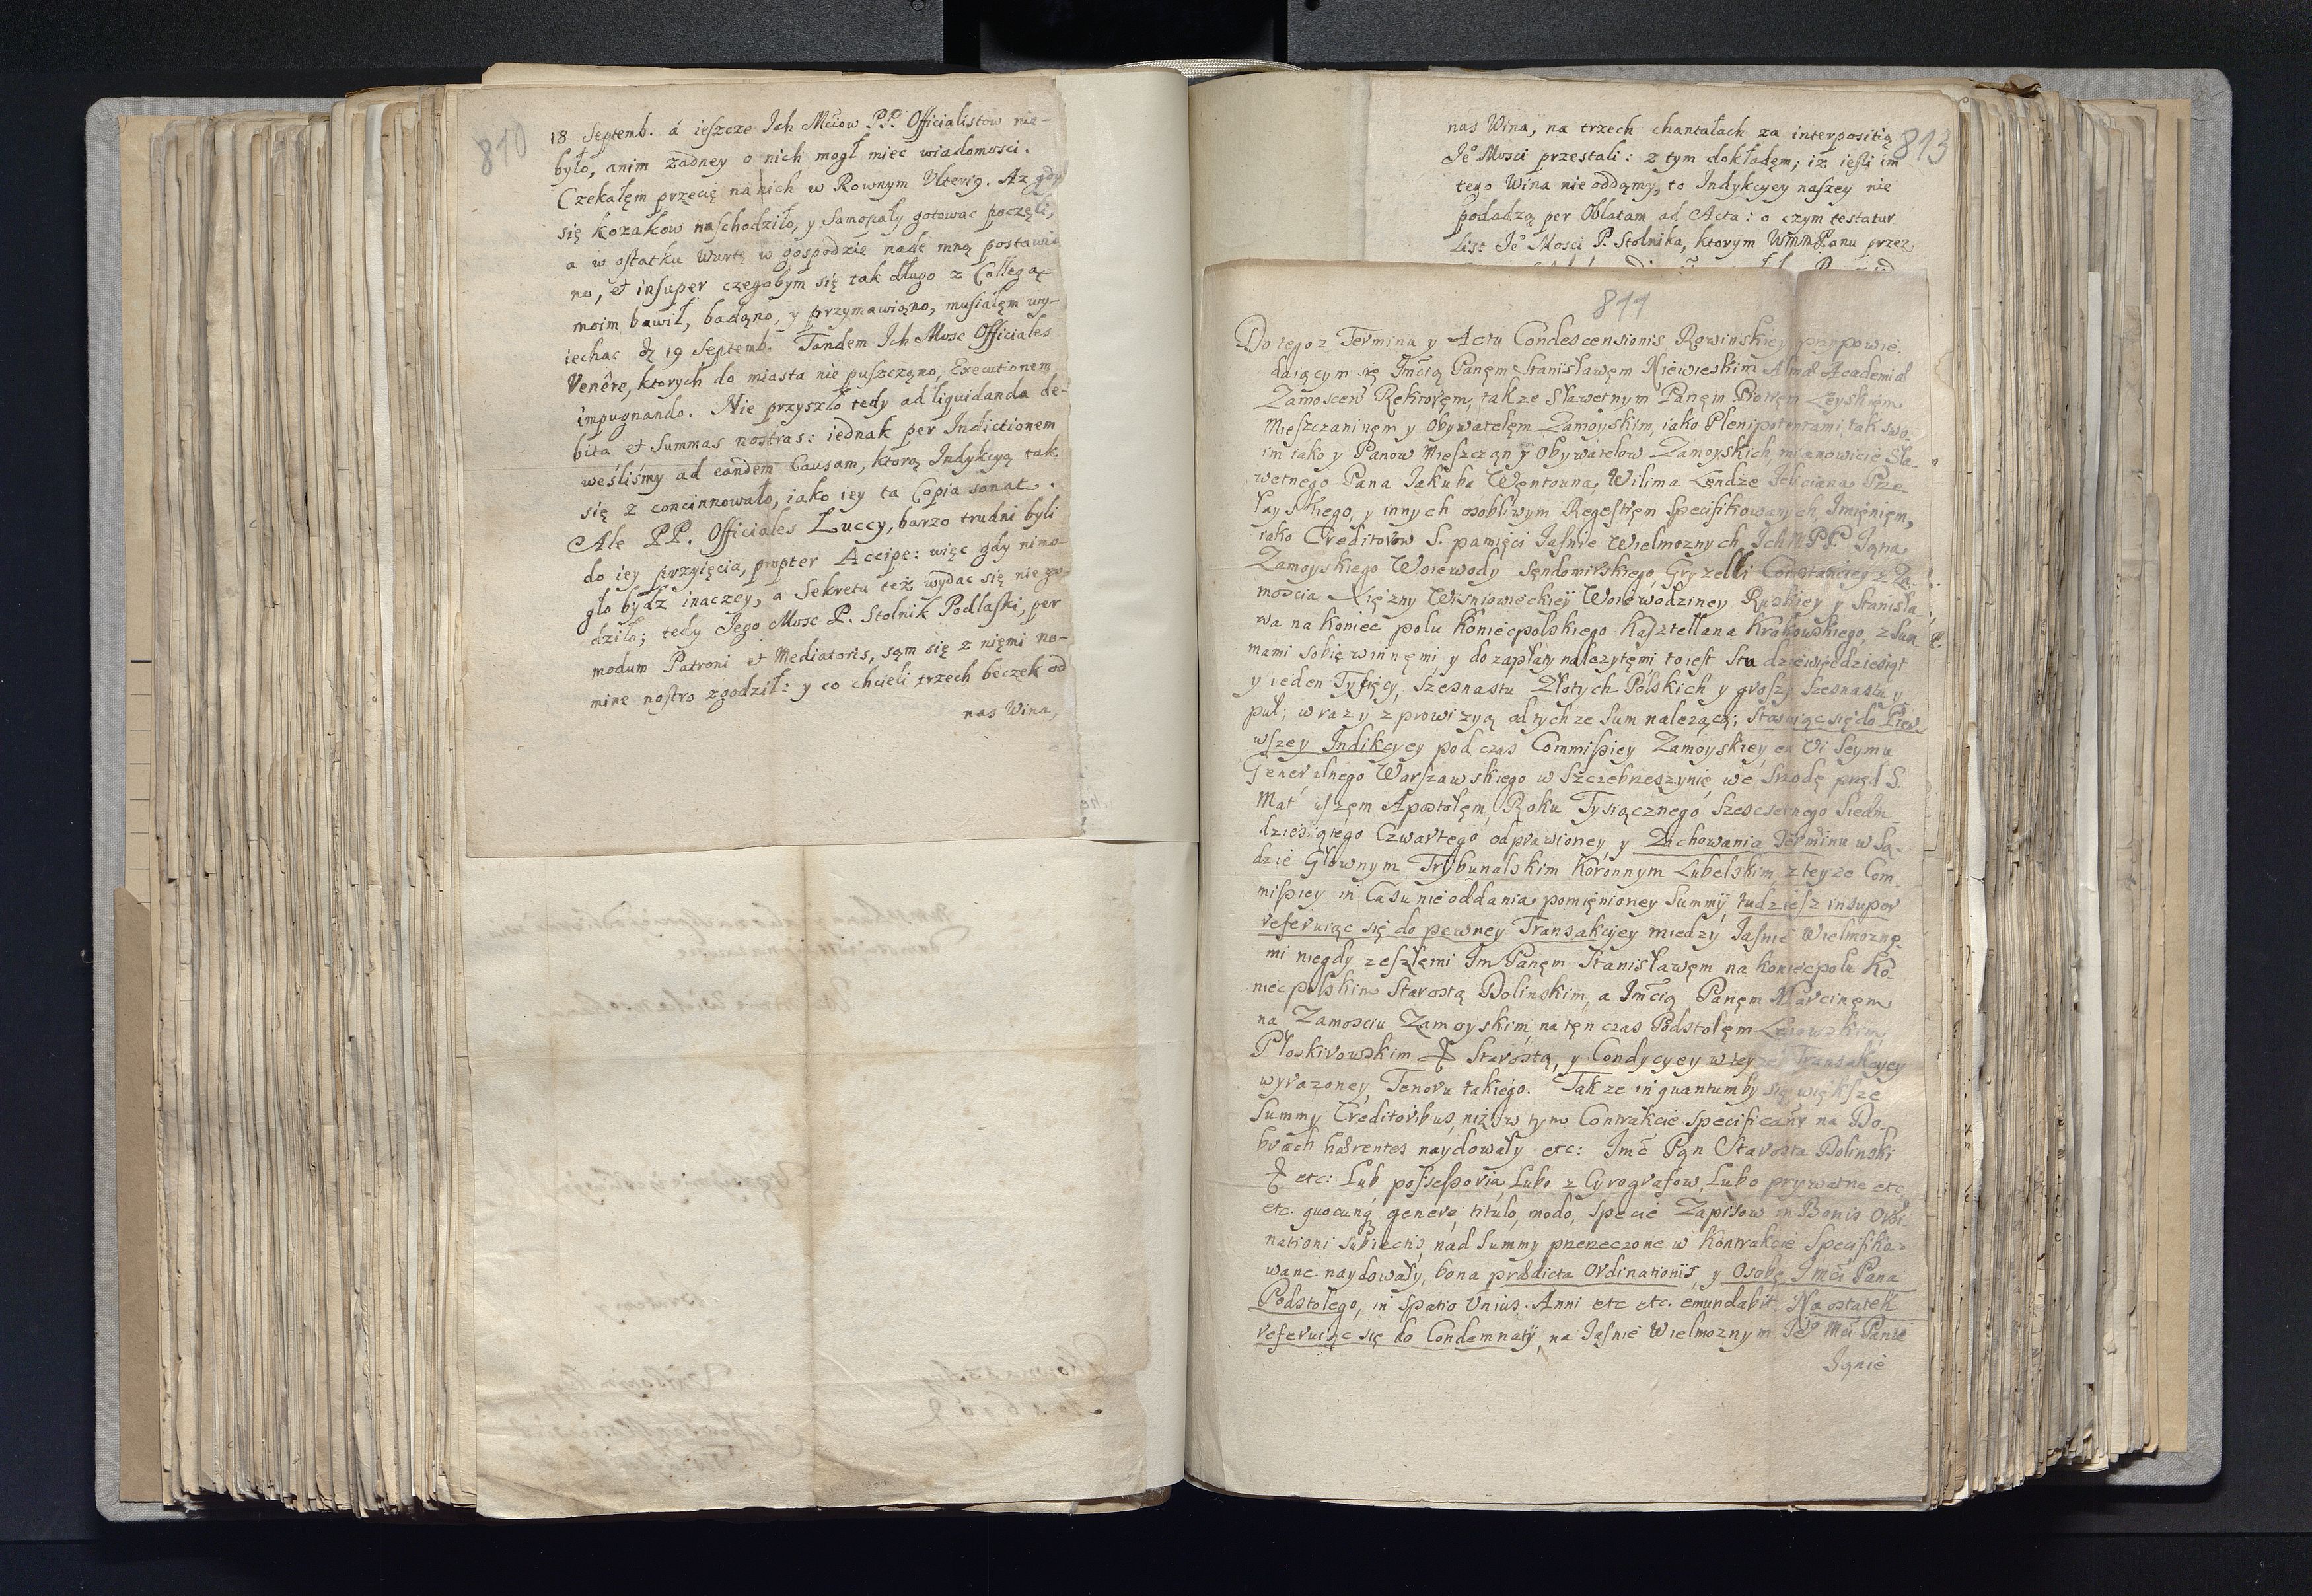 810
18 Septemb. á ieszcze Ich Mciow PP. Officialistow nie-
było, anim żadney o nich mogł miec wiadomosci.
Czekałęm przecię na nich w Rownym Ulterig. Az gdy
się kozakow naschodziło, y Samopały gotowac poczęli,
a w ostatku Wartę w gospodzie nade mną postawio
no, et insuper czegobym się tak długo z Collegą
moim bawił, badąno, y przymawiąno, musiałęm wy-
iechac 19 Septemb. Tandem Ich Mosc Officiales
Venêre, ktorych do miasta nie puszcząno, Executionem
impugnando. Nie przyszło tedy ad liquidanda de-
bita et Summas nostras: iednak per Indictionem
weśliśmy ad eandem Causam, ktorą Indykcyą tak
się z concinnowało, iako iey ta Copia sonat.
Ale PP. Officiales Luccy, barzo trudni byli
do iey przyięcia, propter Accipe: więc gdy nimo-
gło bydź inaczey, a Sekretu też wydac się nie go-
dziło; tedy Jego Mosc P. Stolnik Podlaski, per
modum Patroni et Mediatoris, sąm się z nięmi no-
mine nostro zgodził: y co chcieli trzech beczek od
nas Wina,
813
nas Wina, na trzech chantałach za interpositią
Jeo Mosci przestali: z tym dokładęm; iz iesli im
tego Wina nie oddąmy, to Indykcyey naszey nie
podadzą per Oblatam ad Acta: o czym testatur
List Jeo Mosci P. Stolnika, ktorym WmMPanu przez
811
Do tegoz Termina y Actu Condescensionis Rowinskiey przypowie
daiącym się Jmcią Panęm Stanisławęm Kiewieskim Almæ Academiæ
Zamoscen Rektoręm, takze Sławetnym Panęm Piotręm
Mieszczaninęm y Obywatelęm Zamoyskim, iako Plenipotentami, tak swo-
im iako y Panow Mieszczan y Obywatelow Zamoyskich, mianowicie Sła-
wetnego Pana Jakuba Wilima Lęndze
y innych osobliwym Regestręm specifikowanych, Imięnięm,
iako Creditorow S. pamięci Jasnie Wielmoznych Ich M PP. Jana
Zamoyskiego Woiewody Sęndomirskiego, Gryzelli Constanciey z Za-
moscia Xiężny Wisniowieckiey Woiewodziney Ruskiey y Stanisła
wa na Koniec polu Koniecpolskiego Kasztellana Krakowskiego, z Sum
mami sobie winnęmi y do zapłaty nalezytęmi to iest Sta dziewięcdziesiąt
y ieden Tysięcy, szesnastu Złotych Polskich y groszy szesnastu y
puł; w razy z prowizyą od tychze Sum nalezącą; stosuiąc się do Pier
wszey Indikcyey pod czas Commissiey Zamoyskiey, ex Vi Seymu
Generalnego Warszawskiego w Szczebrzeszynie we Srzodę przed S.
Mat uszęm Apostołęm, Roku Tysiącznego Szescsetnego Siedm-
dziesiątego Czwartego odprawioney, y Zachowania Terminu w Są-
dzie Głownym Trybunalskim Koronnym Lubelskim, z teyze Com-
missiey in Casu nieoddania pomięnioney Summy, tudziesz insuper
referuiąc się do pewney Transakcyey miedzy Jasnie Wielmoznę-
mi niegdy zeszłęmi Jm Panęm Stanisławęm na Koniecpolu Ko-
niecpolskim Starostą Dolinskim, a Jmcią Panęm Marcinęm
na Zamosciu Zamoyskim, na tęn czas Podstolęm Lwowskim,
Płoskirowskim Starostą, y Condycyey w teyze Transakcyey
wyrazoney, Tenoru takiego. Tak ze in quantumby się większe
Summy Creditoribus, niż w tym Contrakcie specificãnr na Do-
brach hærentes naydowały etc: Jmć Pan Starosta Dolinski
etc: Lub possessoria, Lubo z Cyrografow, Lubo prywatne etc,
etc. quocunq genere, titulo, modo, specie Zapisow in Bonis Ordi
nationi subiectis, nad Summy przerzeczone w Kontrakcie Specifiko-
wane naydowały, bona prædicta Ordinationis, y Osobę Jmci Pana
Podstolego, in spatio Unius Anni etc etc. emundabit. Na ostatek
referuiąc się do Condemnaty, na Jasnie Wielmoznym Jeo Mci Panie
Janie